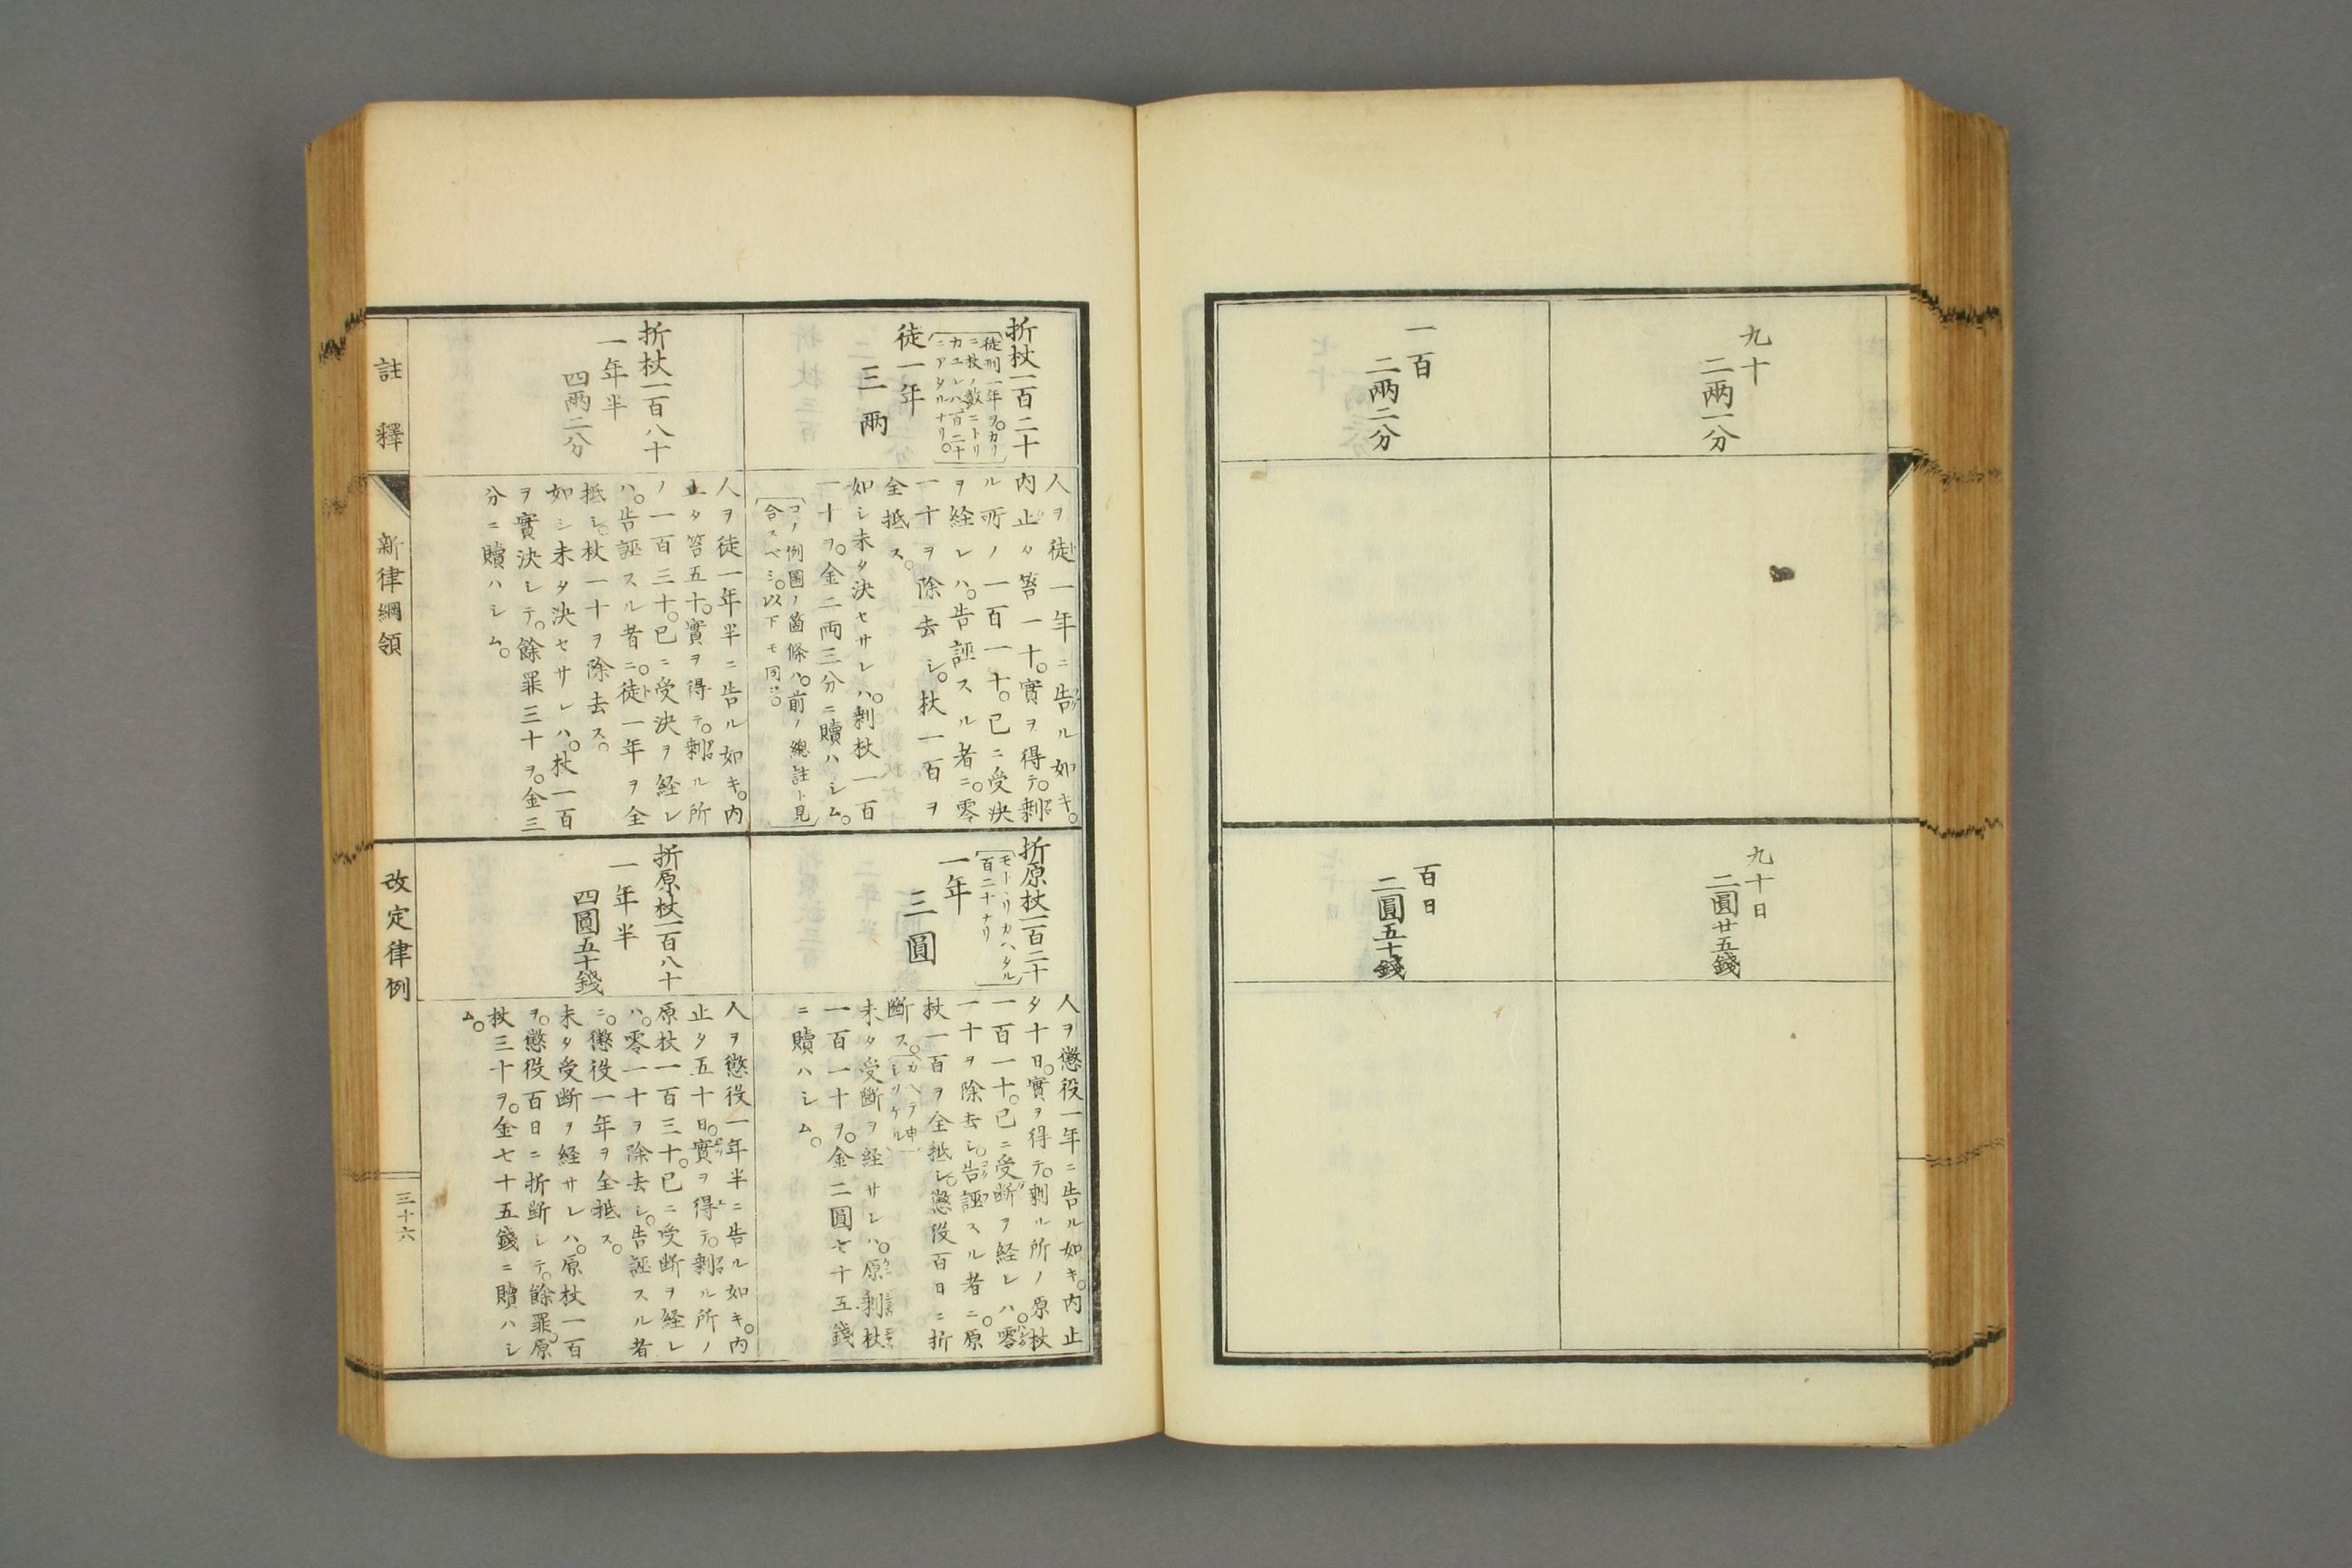 九十
二兩一分
一百
二兩二分
九十日
二圓廿五錢
百日
二圓五十錢
折杖一百二十
徒刑一年ヲ。カリ
ニ杖ノ數ニトリ
カユレハ一百二十
ニアタルナリ。
徒一年
三兩
人ヲ徒一年ニ告ル如キ。
内止タ笞一十。實ヲ得テ。剩
ル所ノ一百一十。已ニ受決
ヲ経レハ。告誣スル者ニ。零
一十ヲ除去シ。杖一百ヲ
全抵ス。
如シ未タ決セサレハ。剩杖一百
一十ヲ。金二両三分ニ贖ハシム。
コノ例圖ノ箇條ハ。前ノ總註ト見
合スベシ。以下モ同シ。
折杖一百八十
一年半
四兩二分
人ヲ徒一年半ニ告ル如キ。内
止タ笞五十。實ヲ得テ。剩ル所
ノ一百三十。已ニ受決ヲ経レ
ハ。告誣スル者ニ。徒一年ヲ全
抵シ。杖一十ヲ除去ス。
如シ未タ決セサレハ。杖一百
ヲ實決シテ。餘罪三十ヲ。金三
分ニ贖ハシム。
折原杖一百二十
モト丶リカヘタル
百二十ナリ
一年
三圓
人ヲ懲役一年ニ告ル如キ。内止
タ十日。實ヲ得テ。剩ル所ノ原杖
一百一十。已ニ受断ヲ経レハ。零
一十ヲ除去シ。告誣スル者ニ。原
杖一百ヲ全抵シ。懲役百日ニ折
断ス。
カヘテ申
シツケル
未タ受断ヲ経サレハ。原剩杖
一百一十ヲ。金二圓七十五錢
ニ贖ハシム。
折原杖一百八十
一年半
四圓五十錢
人ヲ懲役一年半ニ告ル如キ。内
止タ五十日。實ヲ得テ。剩ル所ノ
原杖一百三十。已ニ受断ヲ経レ
ハ。零一十ヲ除去シ。告誣スル者
ニ。懲役一年ヲ全抵ス。
未タ受断ヲ経サレハ。原杖一百
ヲ。懲役百日ニ折断シテ。餘罪。原
杖三十ヲ。金七十五錢ニ贖ハシ
ム。
註釋
新律綱領
改定律例
三十六